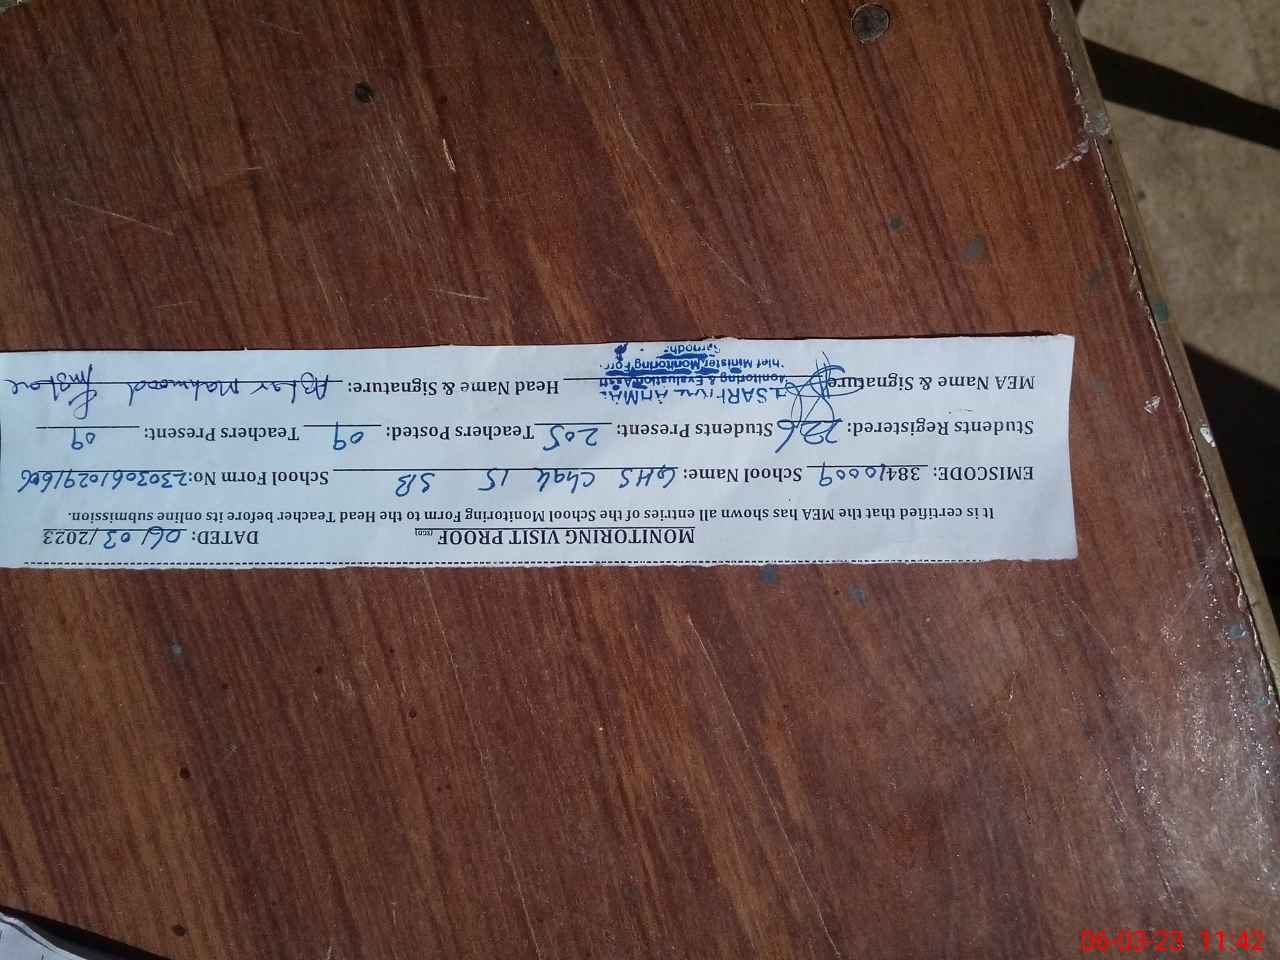 MONITORING VISIT PROOF DATED: 06/03/2023
It is certified that the MEA has shown all entries of the School Monitoring Form to the Head Teacher before its online submission.
EMISCODE: 38410009 School Name: GHS Chak 15 SB School Form No: 23030610291606
Students Registered: 226 Students Present: 205 Teachers Posted: 09 Teachers Present: 09
MEA Name & Signature Head Name & Signature: Mahmood
Monitoring & Evaluation Assit
Chief Minister, Monitoring Forc
Sargodha
06-03-23 11:42